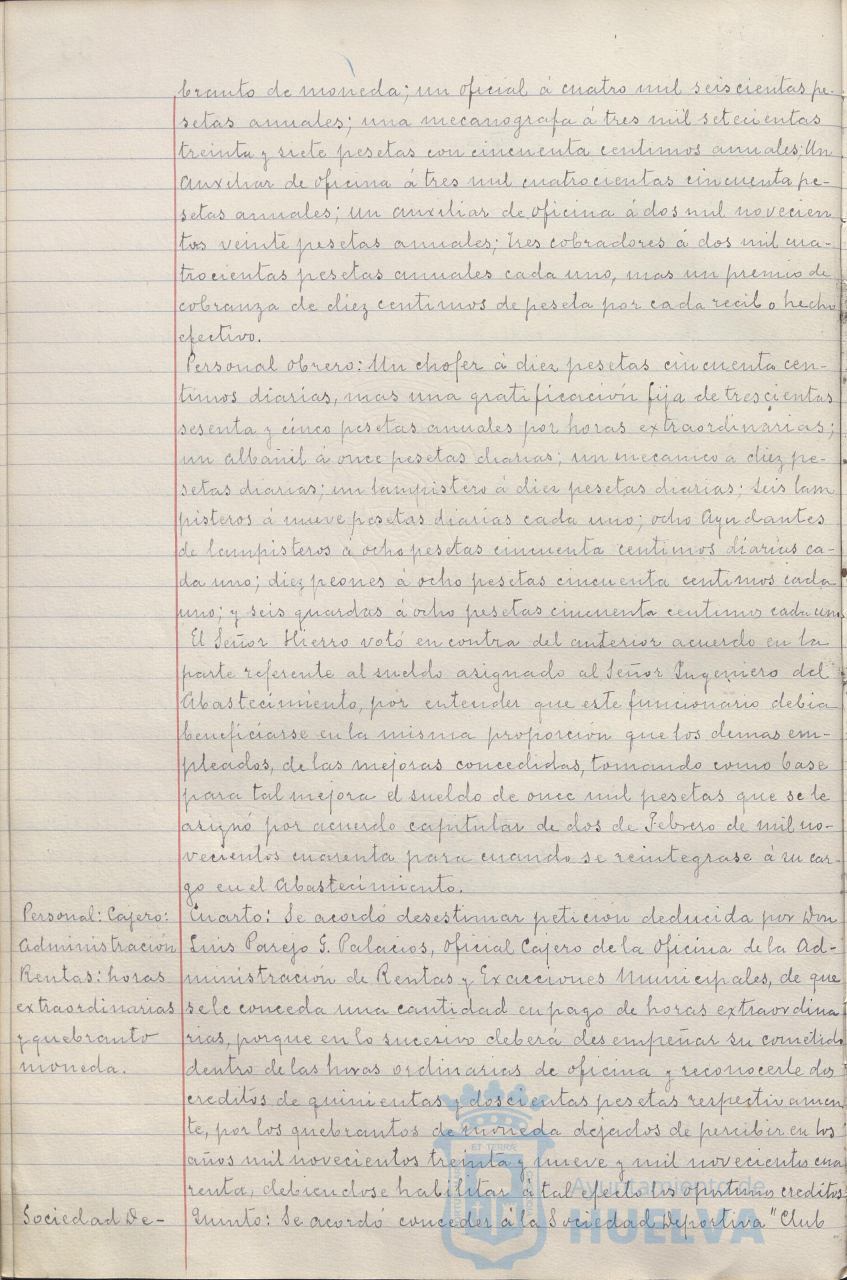 branto de moneda; un oficial á cuatro mil seiscientas pe-
setas anuales; una mecanografa á tres mil setecientas
treinta y siete pesetas con cincuenta centimos anuales: Un
Auxiliar de oficina á tres mil cuatrocientas cincuenta pe-
setas anuales; un auxiliar de oficina á dos mil novecien
tas veinte pesetas anuales; tres cobradores á dos mil cua-
trocientas pesetas anuales cada uno, mas un premio de
cobranza de diez centimos de peseta por cada recibo hecho
efectivo.
Personal obrero: Un chofer á diez pesetas cincuenta cen-
timos diarias, mas una gratificación fija de trescientas
sesenta y cinco pesetas anuales por horas extraordinarias;
un albañil á once pesetas diarias; un mecanico a diez pe-
setas diarias; un lampistero á diez pesetas diarias; seis lam
pisteros á nueve pesetas diarias cada uno; ocho Ayudantes
de lampisteros á ocho pesetas cincuenta centimos diarias ca-
da uno; diez peones á ocho pesetas cincuenta centimos cada
uno; y seis guardas á ocho pesetas cincuenta centimos cada uno.
El Señor Hierro votó en contra del anterior acuerdo en la
parte referente al sueldo asignado al Señor Ingeniero del
Abastecimiento, por entender que este funcionario debia
beneficiarse en la misma proporción que los demas em-
pleados, de las mejoras concedidas, tomando como base
para tal mejora el sueldo de once mil pesetas que se le
asignó por acuerdo capitular de dos de Febrero de mil no-
vecientos cuarenta para cuando se reintegrase á su car-
go en el Abastecimiento.
Personal: Cajero:
Administración
Rentas: horas
extraordinarias
y quebranto
moneda.
Cuarto: Se acordó desestimar petición deducida por Don
Luis Parejo G. Palacios, Oficial Cajero de la Oficina de la Ad-
ministración de Rentas y Exacciones Municipales, de que
se le conceda una cantidad en pago de horas extraordina
rias, porque en lo sucesivo deberá desempeñar su cometido
dentro de las horas ordinarias de oficina y reconocerle dos
creditos de quinientas y doscientas pesetas respectivamen
te, por los quebrantos de moneda dejados de percibir en los
años mil novecientos treinta y nueve y mil novecientos cua
renta, debiendose habilitar á tal efecto los oportunos creditos
Sociedad De-
Quinto: Se acordó conceder á la Sociedad Deportiva "Club
Ayuntamiento de
HUELVA